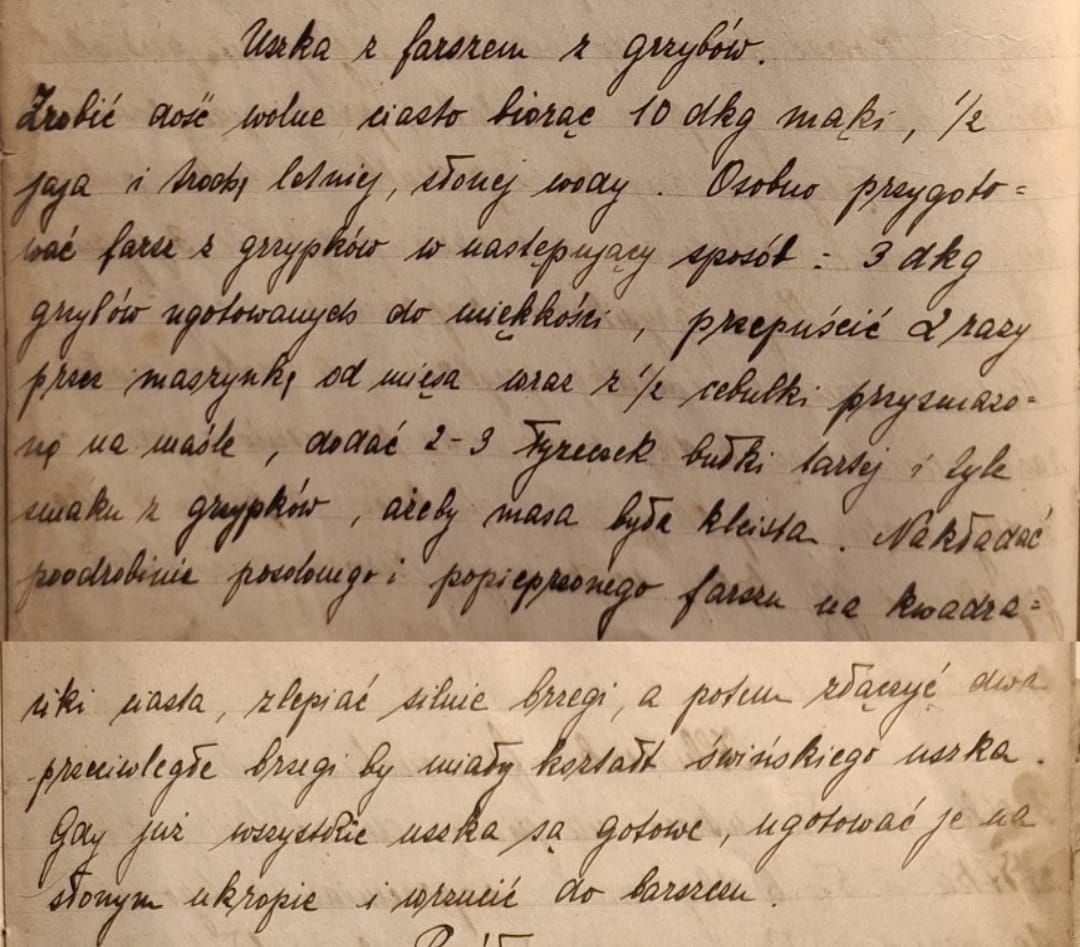 Uszka z farszem z grzybów.
Zrobić dość wolne ciasto biorąc 10 dkg mąki, 1/2
jaja i trochę letniej, słonej wody. Osobno przygoto=
wać farsz z grzypków w następujący sposób: 3 dkg
grzybów ugotowanych do miękkości, przepuścić 2 razy
przez maszynkę od mięsa wraz z 1/2 cebulki przysmażo=
ną na maśle, dodać 2-3 łyżeczek bułki tartej i tyle
smaku z grzypków, ażeby masa była kleista. Nakładać
poodrobinie posolonego i popieprzonego farszu na kwadra=
ciki ciasta, zlepiać silnie brzegi, a potem złączyć dwa
przeciwległe brzegi by miały kształt świńskiego uszka.
Gdy już wszystkie uszka są gotowe, ugotować je na
słonym ukropie i wrzucić do barszczu.